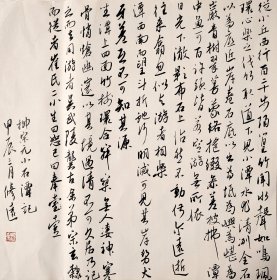 從小丘西行百二十步隔篁竹聞水聲如鳴珮
環心樂之伐竹取道下見小潭水尤清冽全石
以為底近岸卷石底以出為坻為嶼為嵁為
巖青樹翠蔓蒙絡搖綴參差披拂潭
中魚可百許頭皆若空游無所依
日光下澈影布石上佁然不動俶爾遠逝
往來翕忽似與游者相樂
潭西南而望斗折蛇行明滅可見其岸勢犬
牙差互不可知其源
坐潭上四面竹樹環合寂寥無人凄神寒
骨悄愴幽邃以其境過清不可久居乃記
之而去同游者吳武陵龔古余弟宗玄隸
而從者崔氏二小生曰恕己曰奉壹
柳宗元小石潭記
甲辰三月修遠